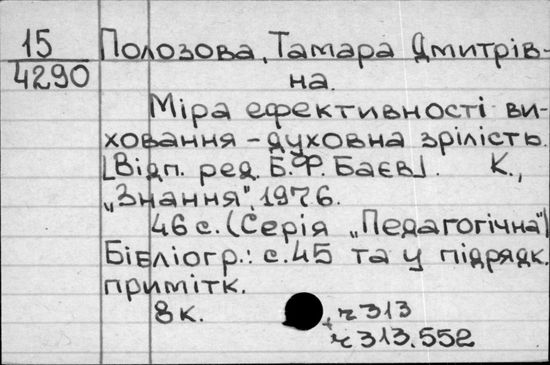 15
4290
Полозова, Тамара Дмитрів-
на.
Міра ефективності ви-
ховання - духовна зрілість.
[Відп. ред. Б.Ф. Баєв]. К.,
„Знання", 1976.
46 с. (Серія „Педагогічна")
Бібліогр.: с. 45 та у підрядк.
примітк.
8к.
+ ч 313
ч 313.552